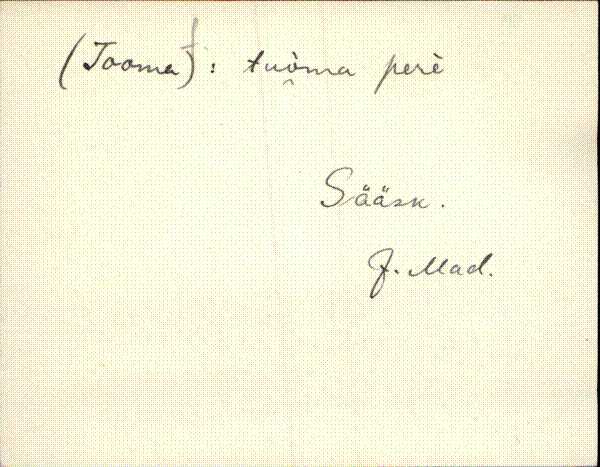 (Tooma): tuò̯ma perè
Sääsk.
J. Mad.